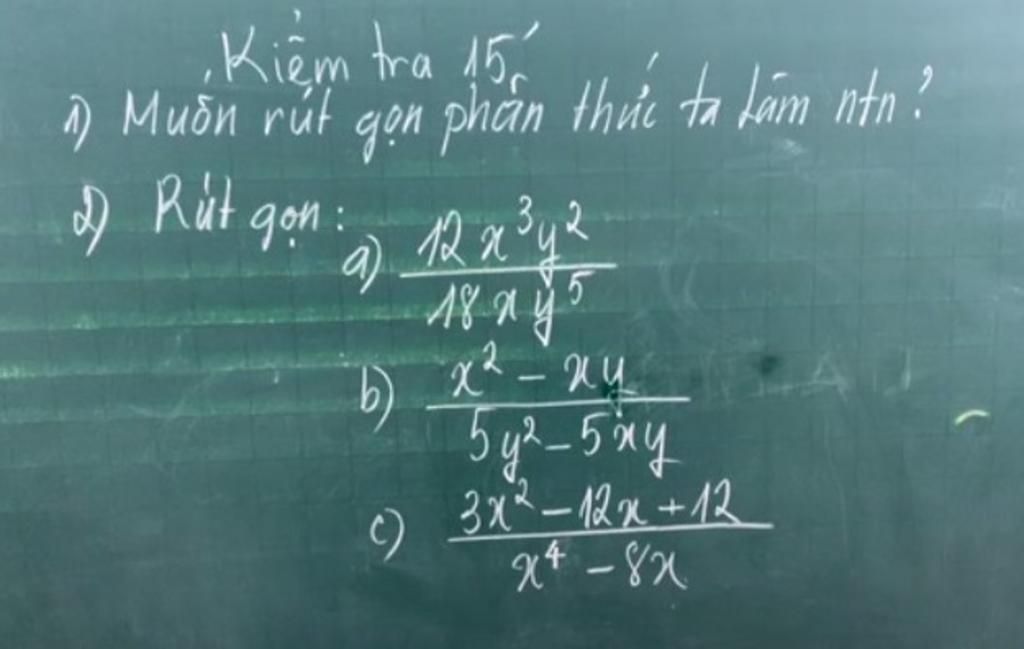 Kiểm tra 15'
1) Muốn rút gọn phân thức ta làm ntn?
2) Rút gọn:
a) 12x³y² / 18xy⁵
b) x² - xy / 5y² - 5xy
c) 3x² - 12x + 12 / x⁴ - 8x